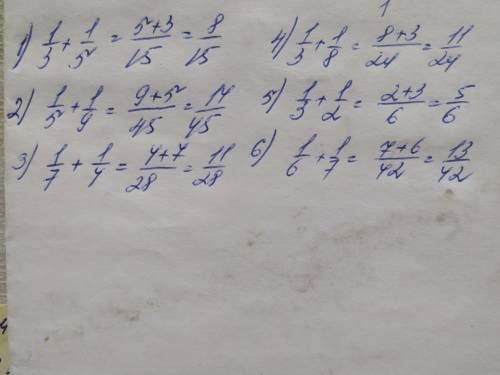 1) 1/3 + 1/5 = (5+3)/15 = 8/15
2) 1/5 + 1/9 = (9+5)/45 = 14/45
3) 1/7 + 1/4 = (4+7)/28 = 11/28
4) 1/3 + 1/8 = (8+3)/24 = 11/24
5) 1/3 + 1/2 = (2+3)/6 = 5/6
6) 1/6 + 1/7 = (7+6)/42 = 13/42